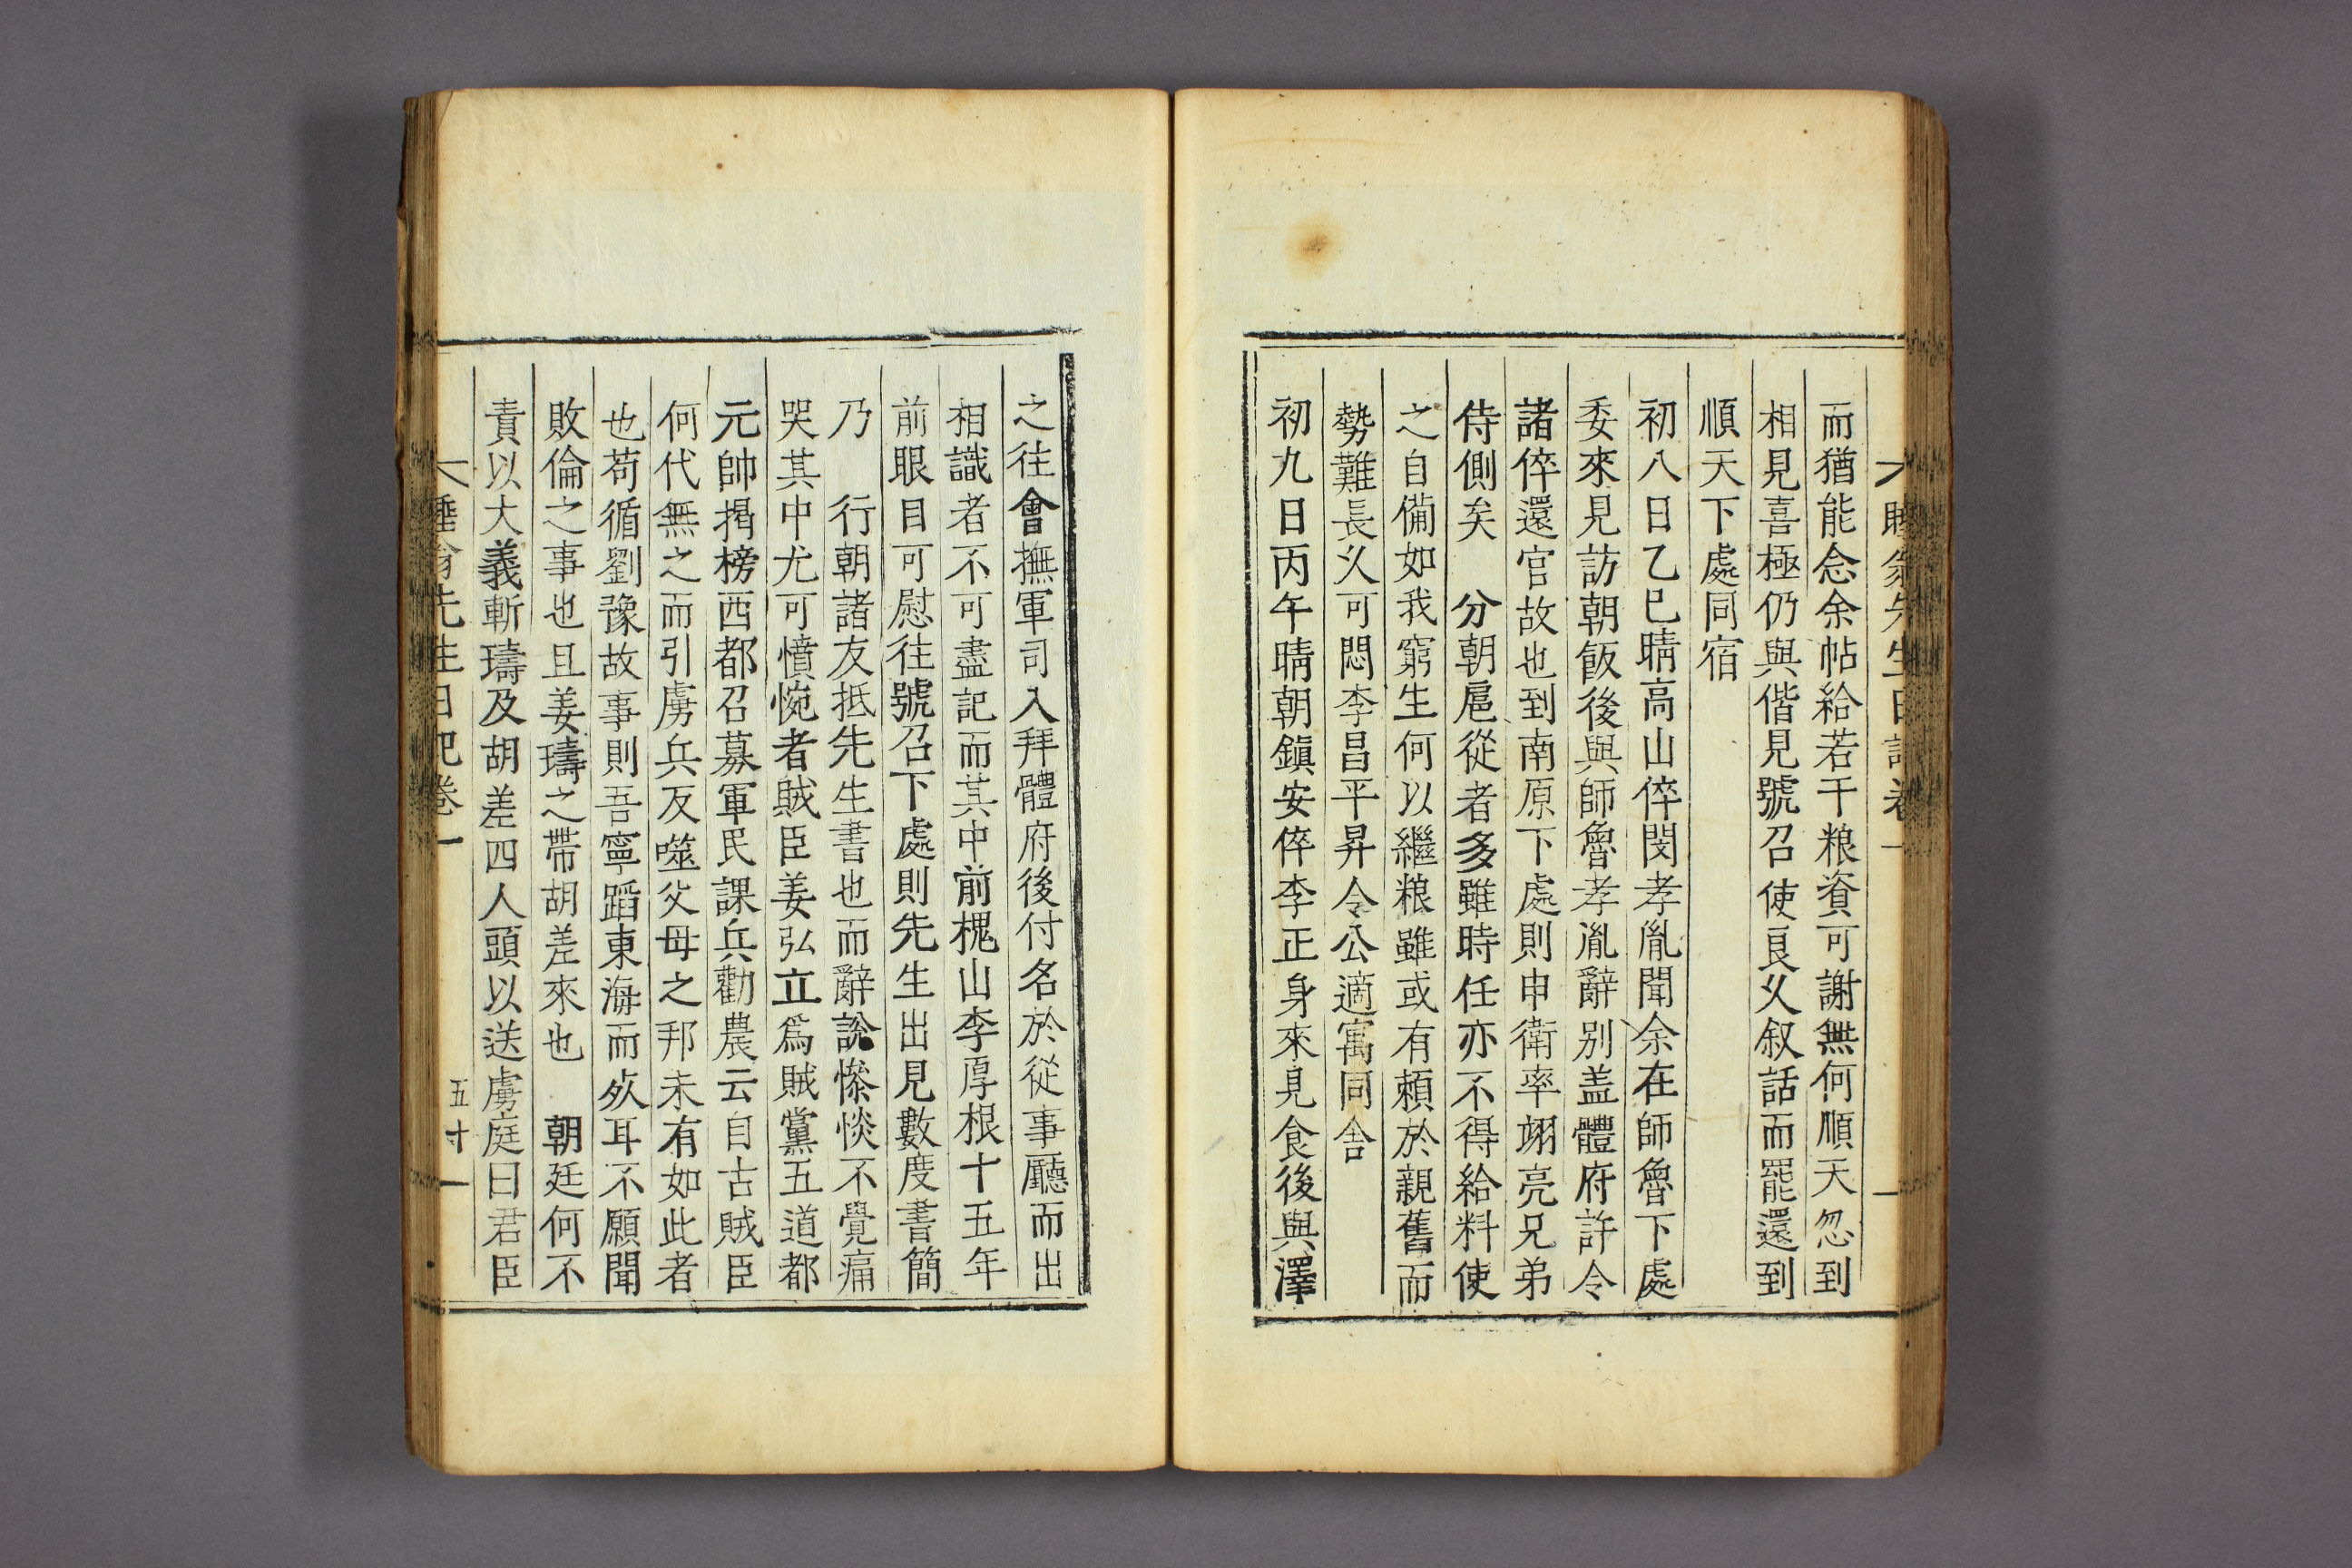 睡翁先生日記卷一
而猶能念余帖給若干粮資可謝無何順天忽到
相見喜極仍與偕見號召使良久叙話而罷還到
順天下處同宿
初八日乙巳晴高山倅閔孝胤聞余在師魯下處
委來見訪朝飯後與師魯孝胤辭別盖體府許令
諸倅還官故也到南原下處則申衛率翊亮兄弟
侍側矣 分朝扈從者多雖時任亦不得給料使
之自備如我窮生何以繼粮雖或有頼於親舊而
勢難長久可悶李昌平昇令公適寓同舍
初九日丙午晴朝鎭安倅李正身來見食後與澤
之往會撫軍司入拜體府後付名於從事廳而出
相識者不可盡記而其中前槐山李厚根十五年
前眼目可慰往號召下處則先生出見數度書簡
乃 行朝諸友抵先生書也而辭說慘惔不覺痛
哭其中尤可憤惋者賊臣姜弘立爲賊黨五道都
元帥揭榜西都召募軍民課兵勸農云自古賊臣
何代無之而引虜兵反噬父母之邦未有如此者
也苟循劉豫故事則吾寧蹈東海而死耳不願聞
敗倫之事也且姜璹之帶胡差來也 朝廷何不
責以大義斬璹及胡差四人頭以送虜庭曰君臣
睡翁先生日記卷一 五十一